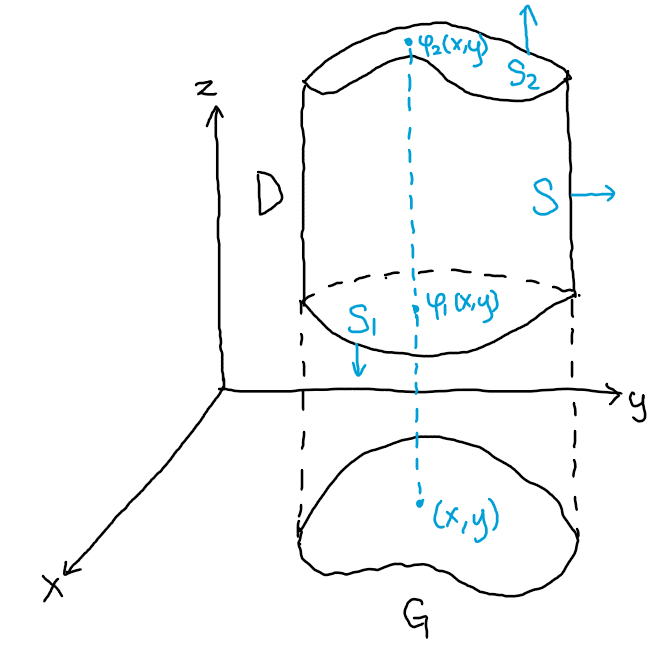 φ₂(x,y)
S₂
z
D
S
φ₁(x,y)
S₁
y
(x,y)
x
G